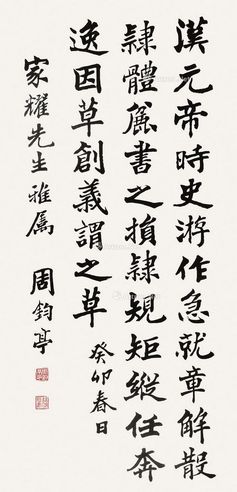 漢元帝時史游作急就章解散
隸體麤書之損隸規矩縱任奔
逸因草創義謂之草
癸卯春日
家耀先生雅属
周鈞亭